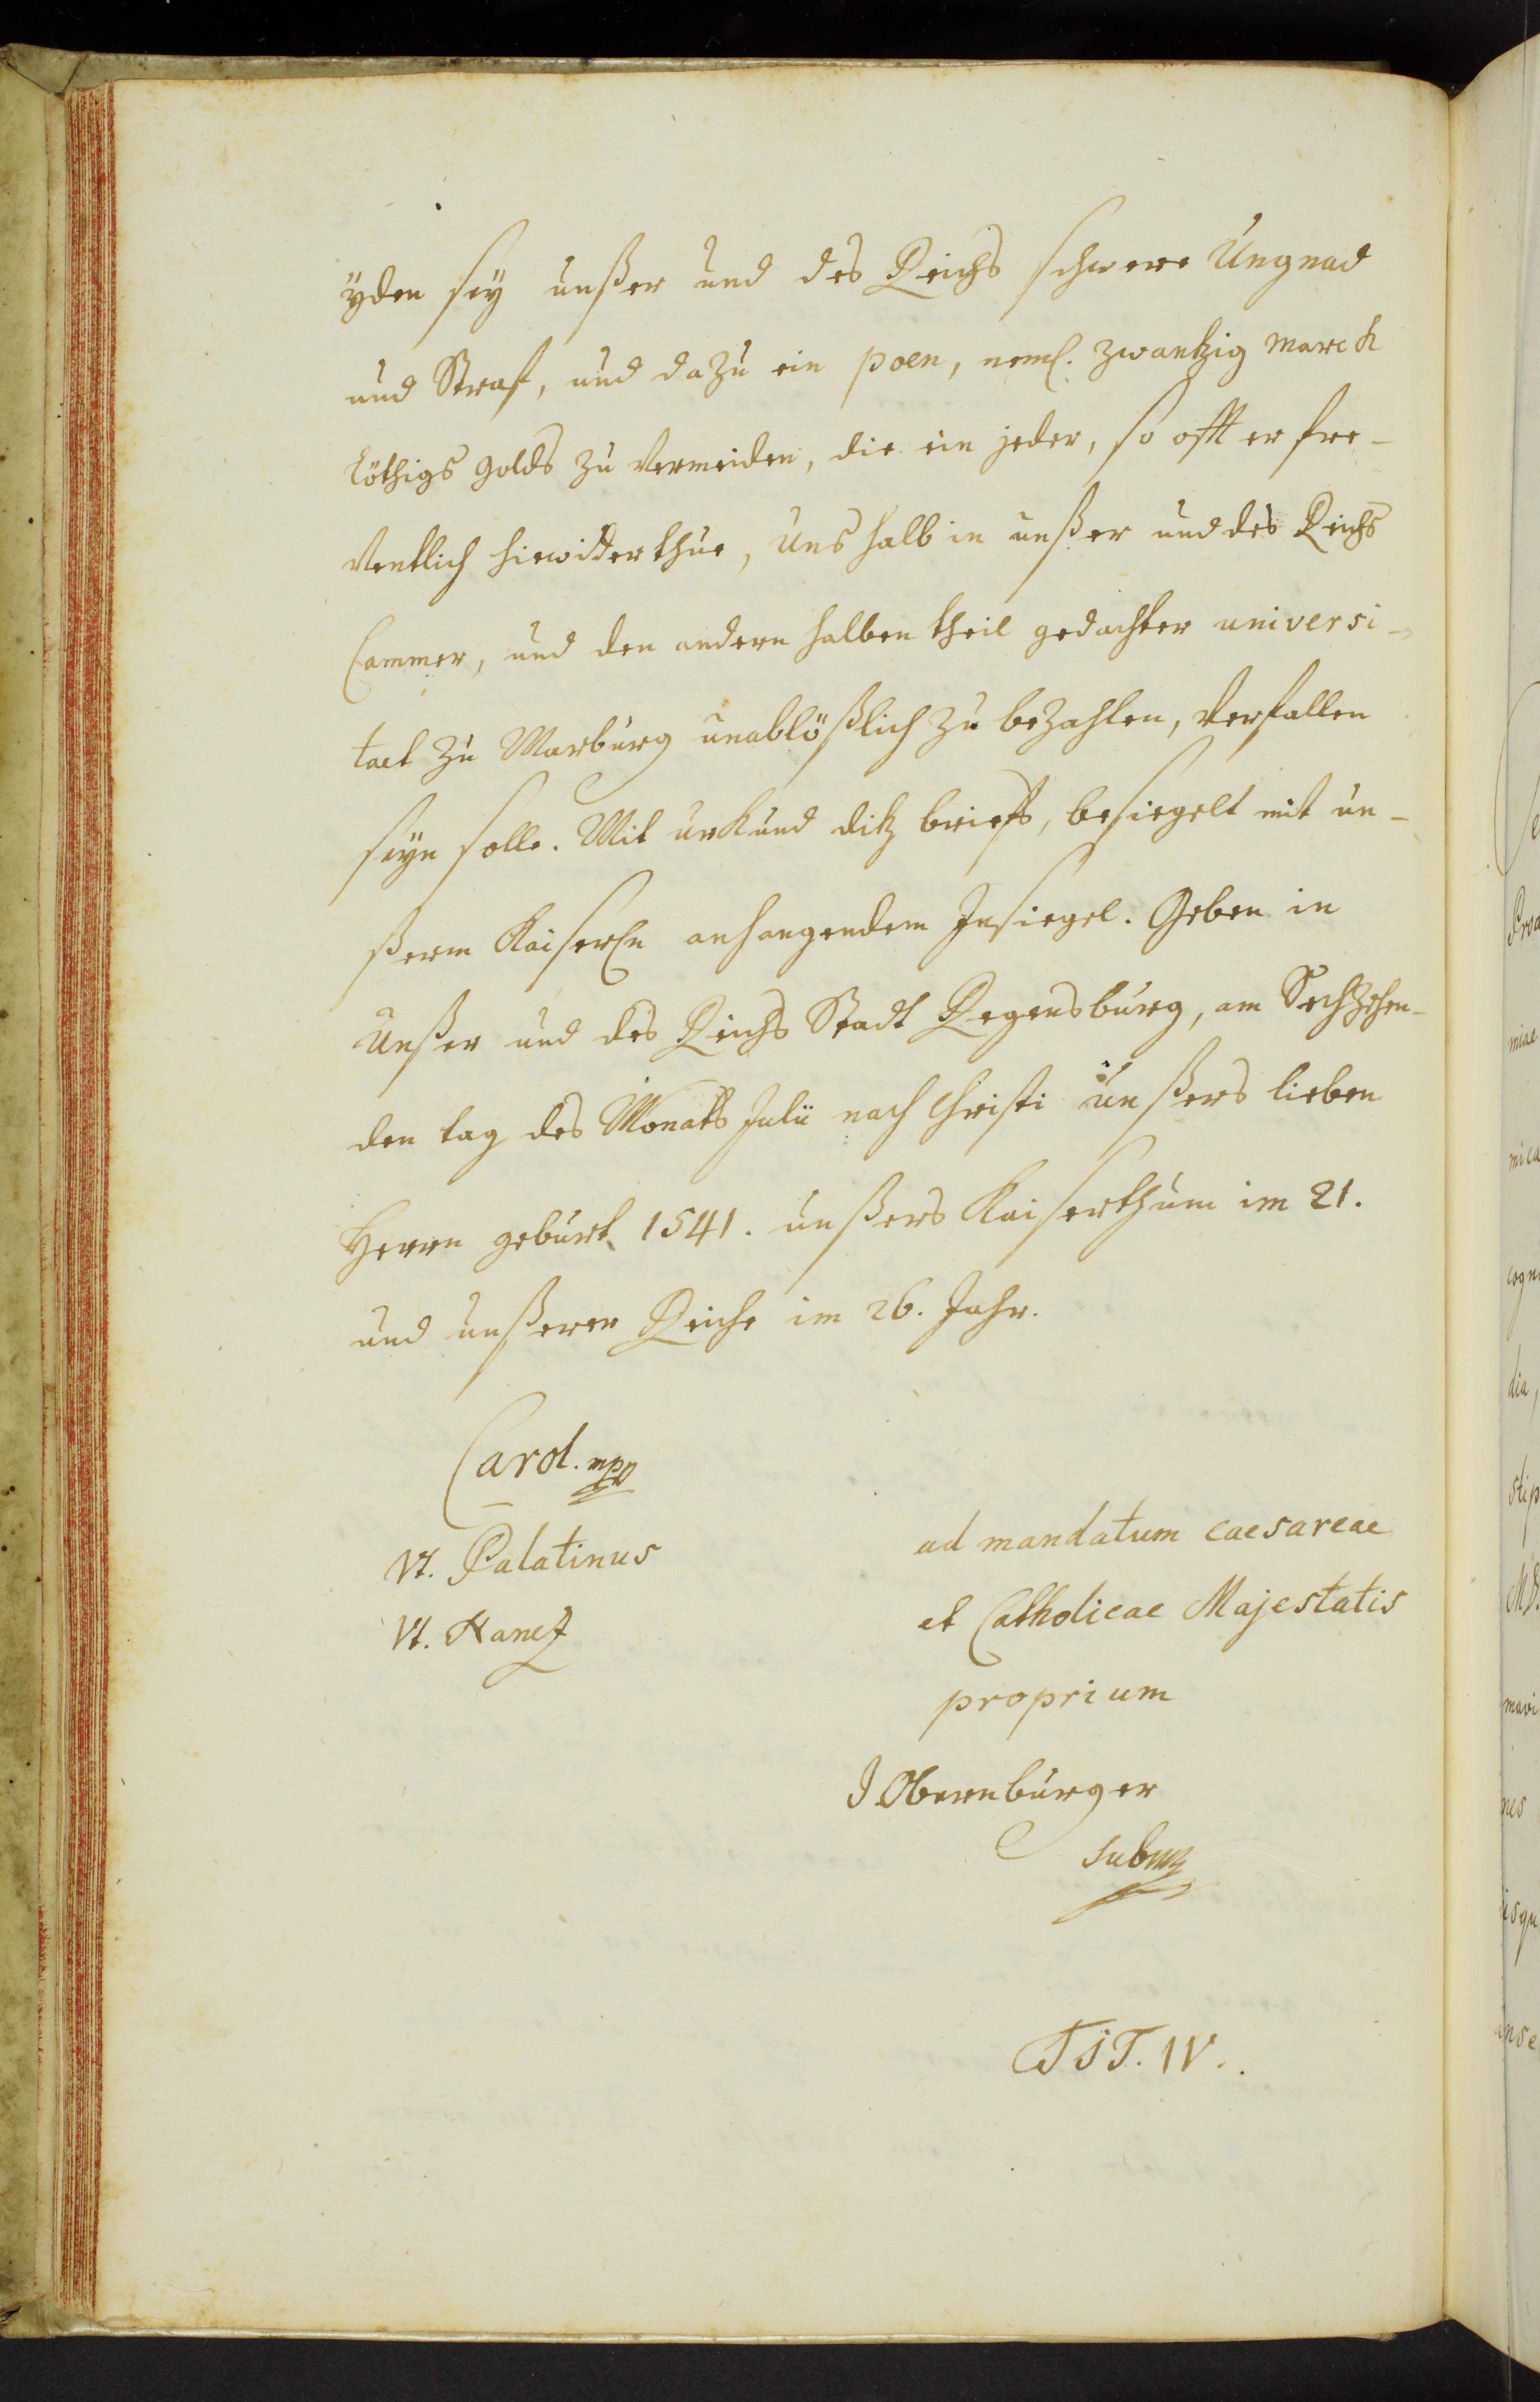 yden sey unßer und des Reichs schwere Ungnad
und Straf, und dazu ein poen, neml. zwantzig marck
löthigs golds zu vermeiden, die ein jeder, so offt er fre-
ventlich hiewidder thue, Uns halb in unßer und des Reichs
Cammer, und den andern halben theil gedachter universi-
taet zu Marburg unablößlich zu bezahlen, verfallen
seyn solle. Mit urkund ditz brieffs, besiegelt mit un-
ßerm Kaiserln anhangendem Insiegel. Geben in
Unßer und des Reichs Stadt Regensburg, am Sechzehen-
den tag des Monats Julii nach Christi unßers lieben
Herrn geburt 1541. unßers Kaiserthum im 21.
und unßerer Reiche im 26. Jahr.
Carol. mpp
Vt. Palatinus
Vt. Nanez
ad mandatum caesareae
et Catholicae Majestatis
proprium
J Obernburger
TIT. IV.